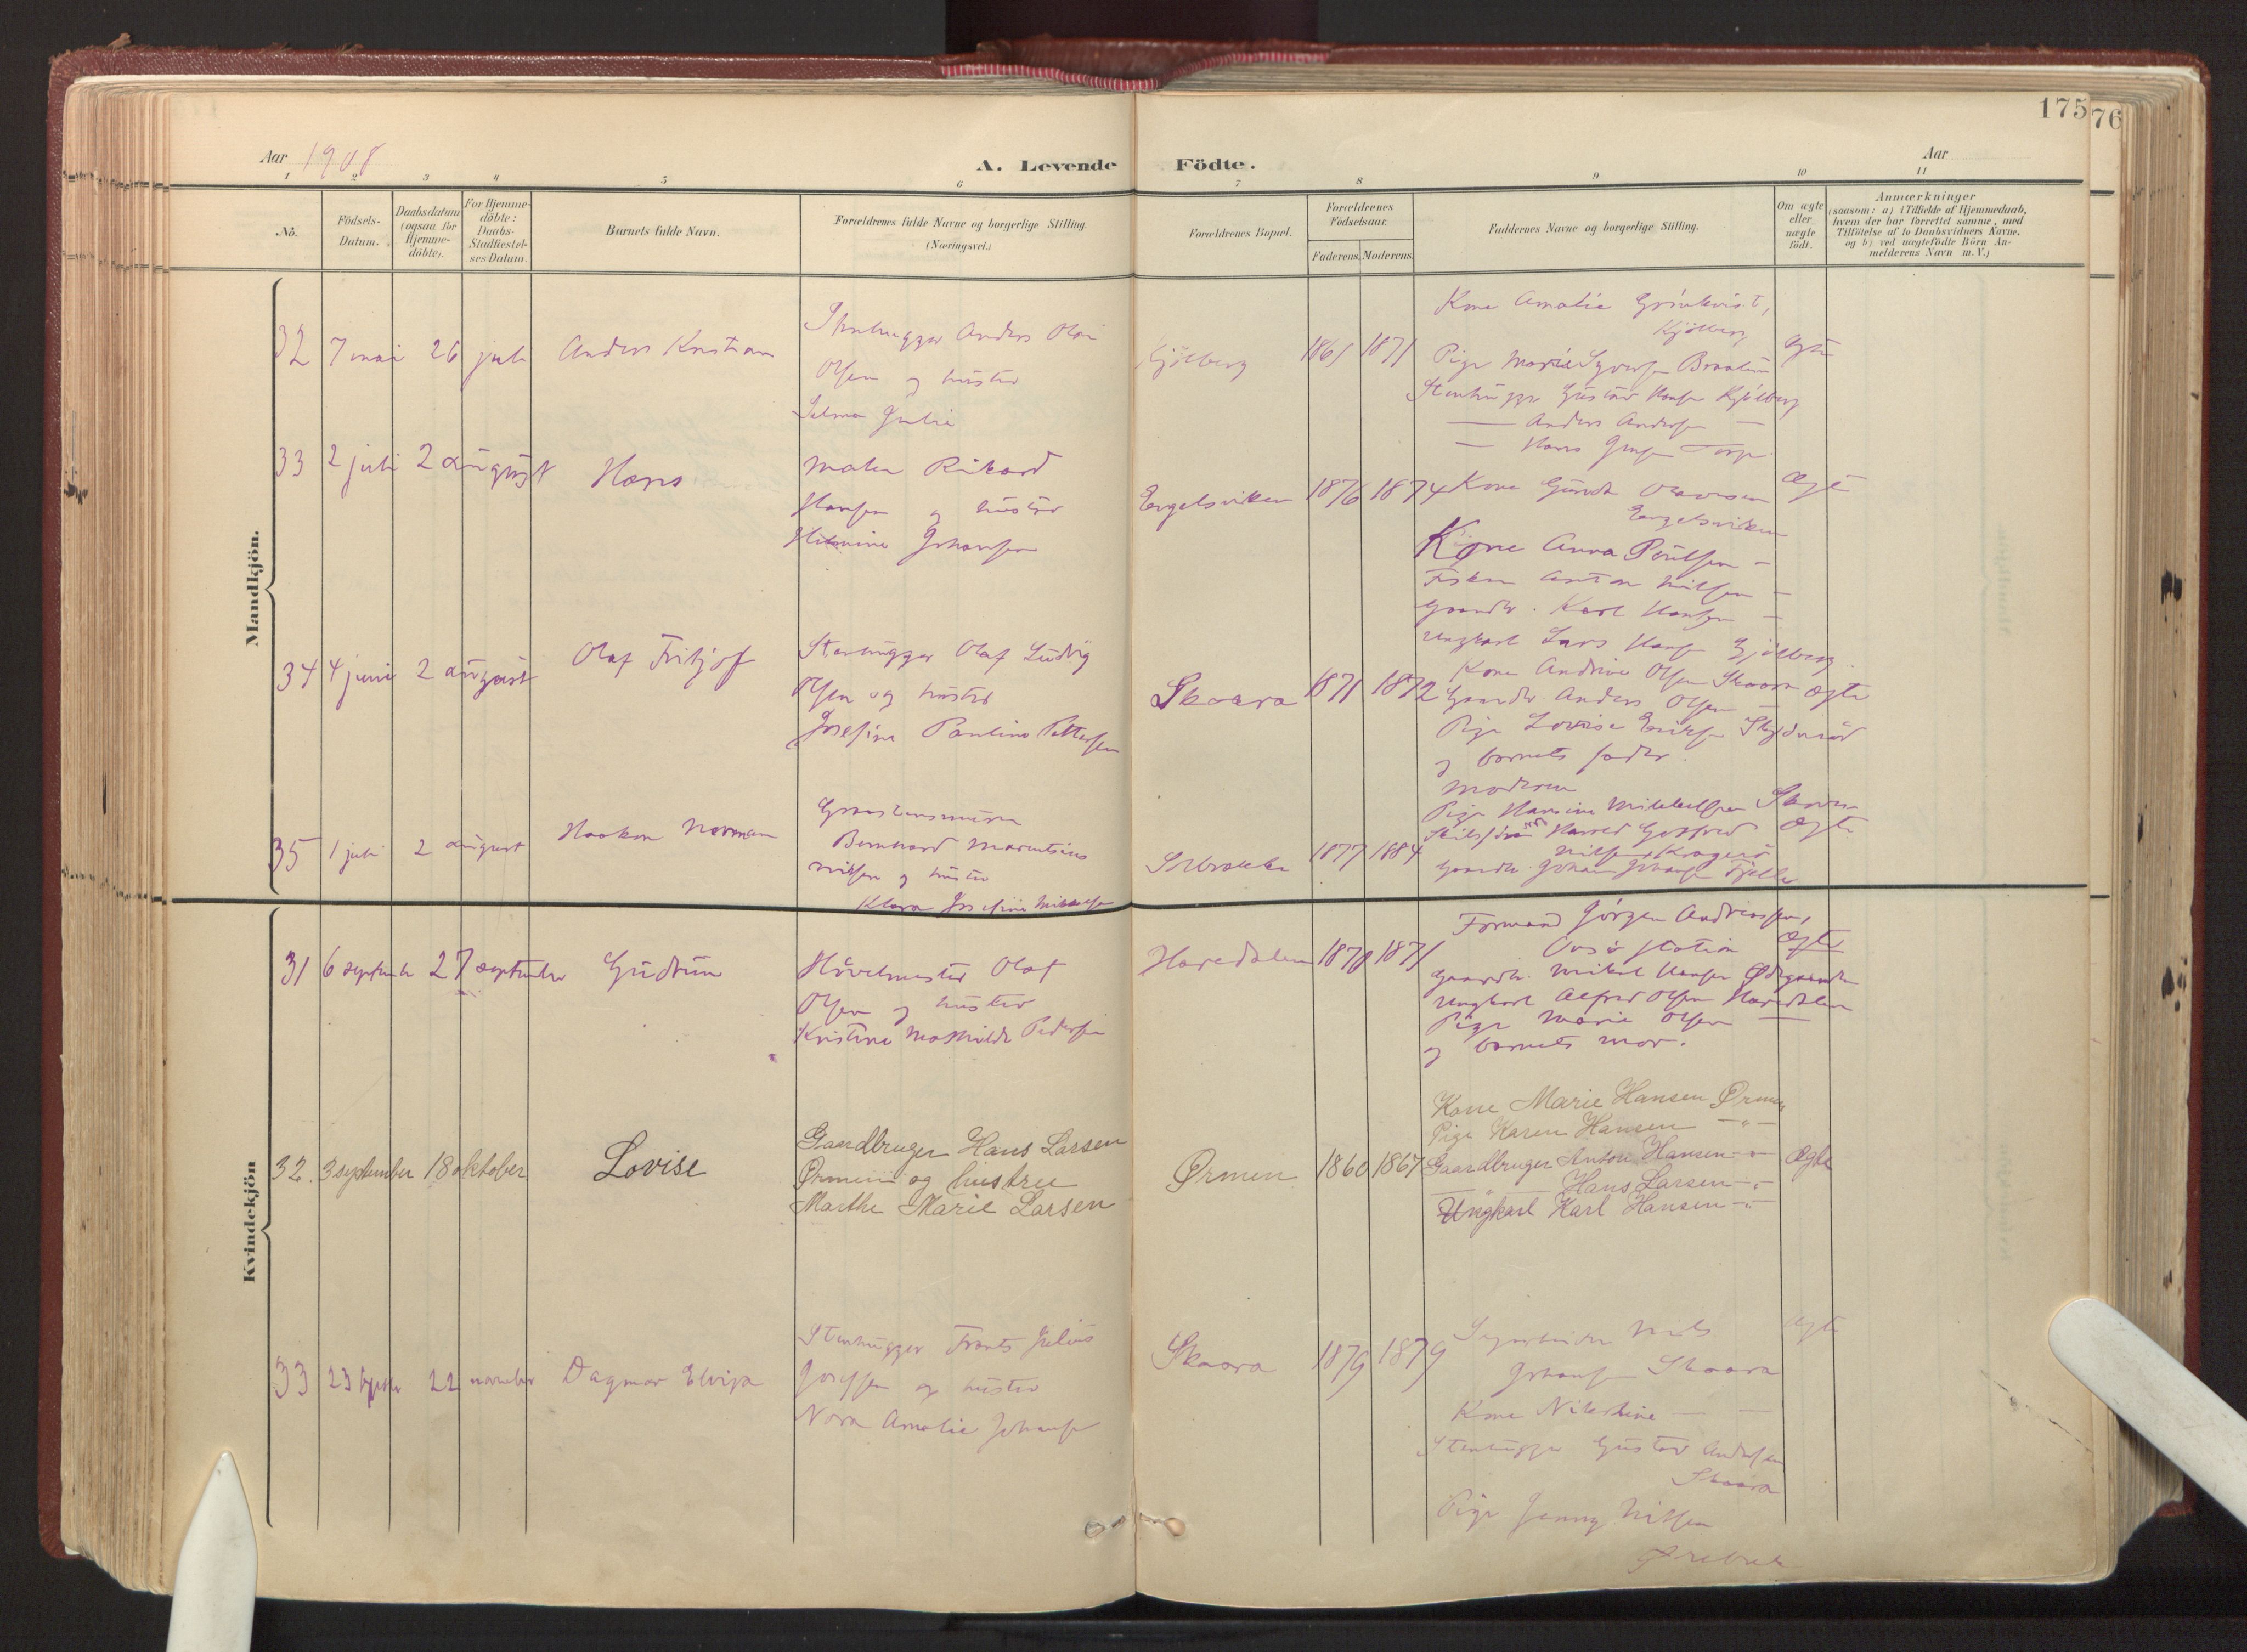 175
76
Aar 1908
A. Levende Födte.
Aar
1 2 3 4 5 6 7 8 9 10 11
Nô.
Födsels-
Datum.
Daabsdatum
(ogsaa for
Hjemme-
döbte).
For Hjemme-
döbte:
Daabs-
Stadfæstel-
ses Datum.
Barnets fulde Navn.
Forældrenes fulde Navne og borgerlige Stilling.
(Næringsvei.)
Forældrenes Bopæl.
Forældrenes
Födselsaar.
Faderens. Moderens.
Faddernes Navne og borgerlige Stilling.
Om ægte
eller
uægte
födt.
Anmærkninger
(saasom: a) i Tilfælde af Hjemmedaab,
hvem der har forrettet samme, med
Tilföielse af to Daabsvidners Navne,
og b) ved uægtefödte Börn An-
melderens Navn m. V.)
Mandkjön.
32 7 mai 26 juli Anders Kristian
Stenhugger Anders Olai
Olsen og hustru
Selma Julie
Kjölberg 1865 1871
Kone Amalie
Kjölberg
Pige Marie Syversen Braaten
Stenhugger Gustav Hansen Kjölberg
— Anders Andersen —
— Hans Torp
ægte
33 2 juli 2 august Hans
Maler Rikard
Hansen og hustru
Johansen
Engelsviken 1876 1874
Kone Gunda
Engelsviken
Kone Anna Poulsen —
Fisker Anton Nilsen —
Gaardbr. Karl Hansen —
Ungkarl Lars Hansen
Ægte
34 4 juni 2 august Olaf Fritjof
Stenhugger Olaf Ludvig
Olsen og hustru
Josefine Pauline Pettersen
Skaara 1871 1872
Kone Andrine Olsen Skaara
Gaardbr Anders Olsen —
Pige Lovise Eriksen
og barnets fader.
ægte
35 1 juli 2 august Haakon Norman
Bernhard Marentsius
Nilsen og hustru
Klara Josefine Mikkelsen
1877 1884
Moderen
Pige Hansine Mikkelsen
Harald Gotfred
Nilsen, Kragerö
Gaardbr. Johan Johansen Fjelle
Ægte
Kvindekjön
31 6 september 27 september Gudrun
Hövelmester Olaf
Olsen og hustru
Kristine Mathilde Pedersen
Haredalen 1870 1871
Formand Jörgen Andreassen,
Onsö station
Gaardbr. Mikal Hansen Ødegaarden
Ungkarl Alfred Olsen Haredalen
Pige Marie Olsen —
og barnets mor.
Ægte
32. 3 september 18 oktober Lovise
Gaardbruger Hans Larsen
Ørmen og hustru
Marthe Marie Larsen
Ørmen 1860 1867
Kone Marie Hansen Ørmen
Pige Karen Hansen —"—
Gaardbruger Anton Hansen —"—
—"— Hans Larsen —"—
Ungkarl Karl Hansen —"—
Ægte
33 23 22 november Dagmar Elvira
Stenhugger Frants Julius
Josefsen og hustru
Nora Amalie Johansen
Skaara 1879 1879
Nils
Johansen Skaara
Kone — —
Stenhugger Gustav Andersen
Skaara
Pige Jenny Nilsen
Ørebek
ægte